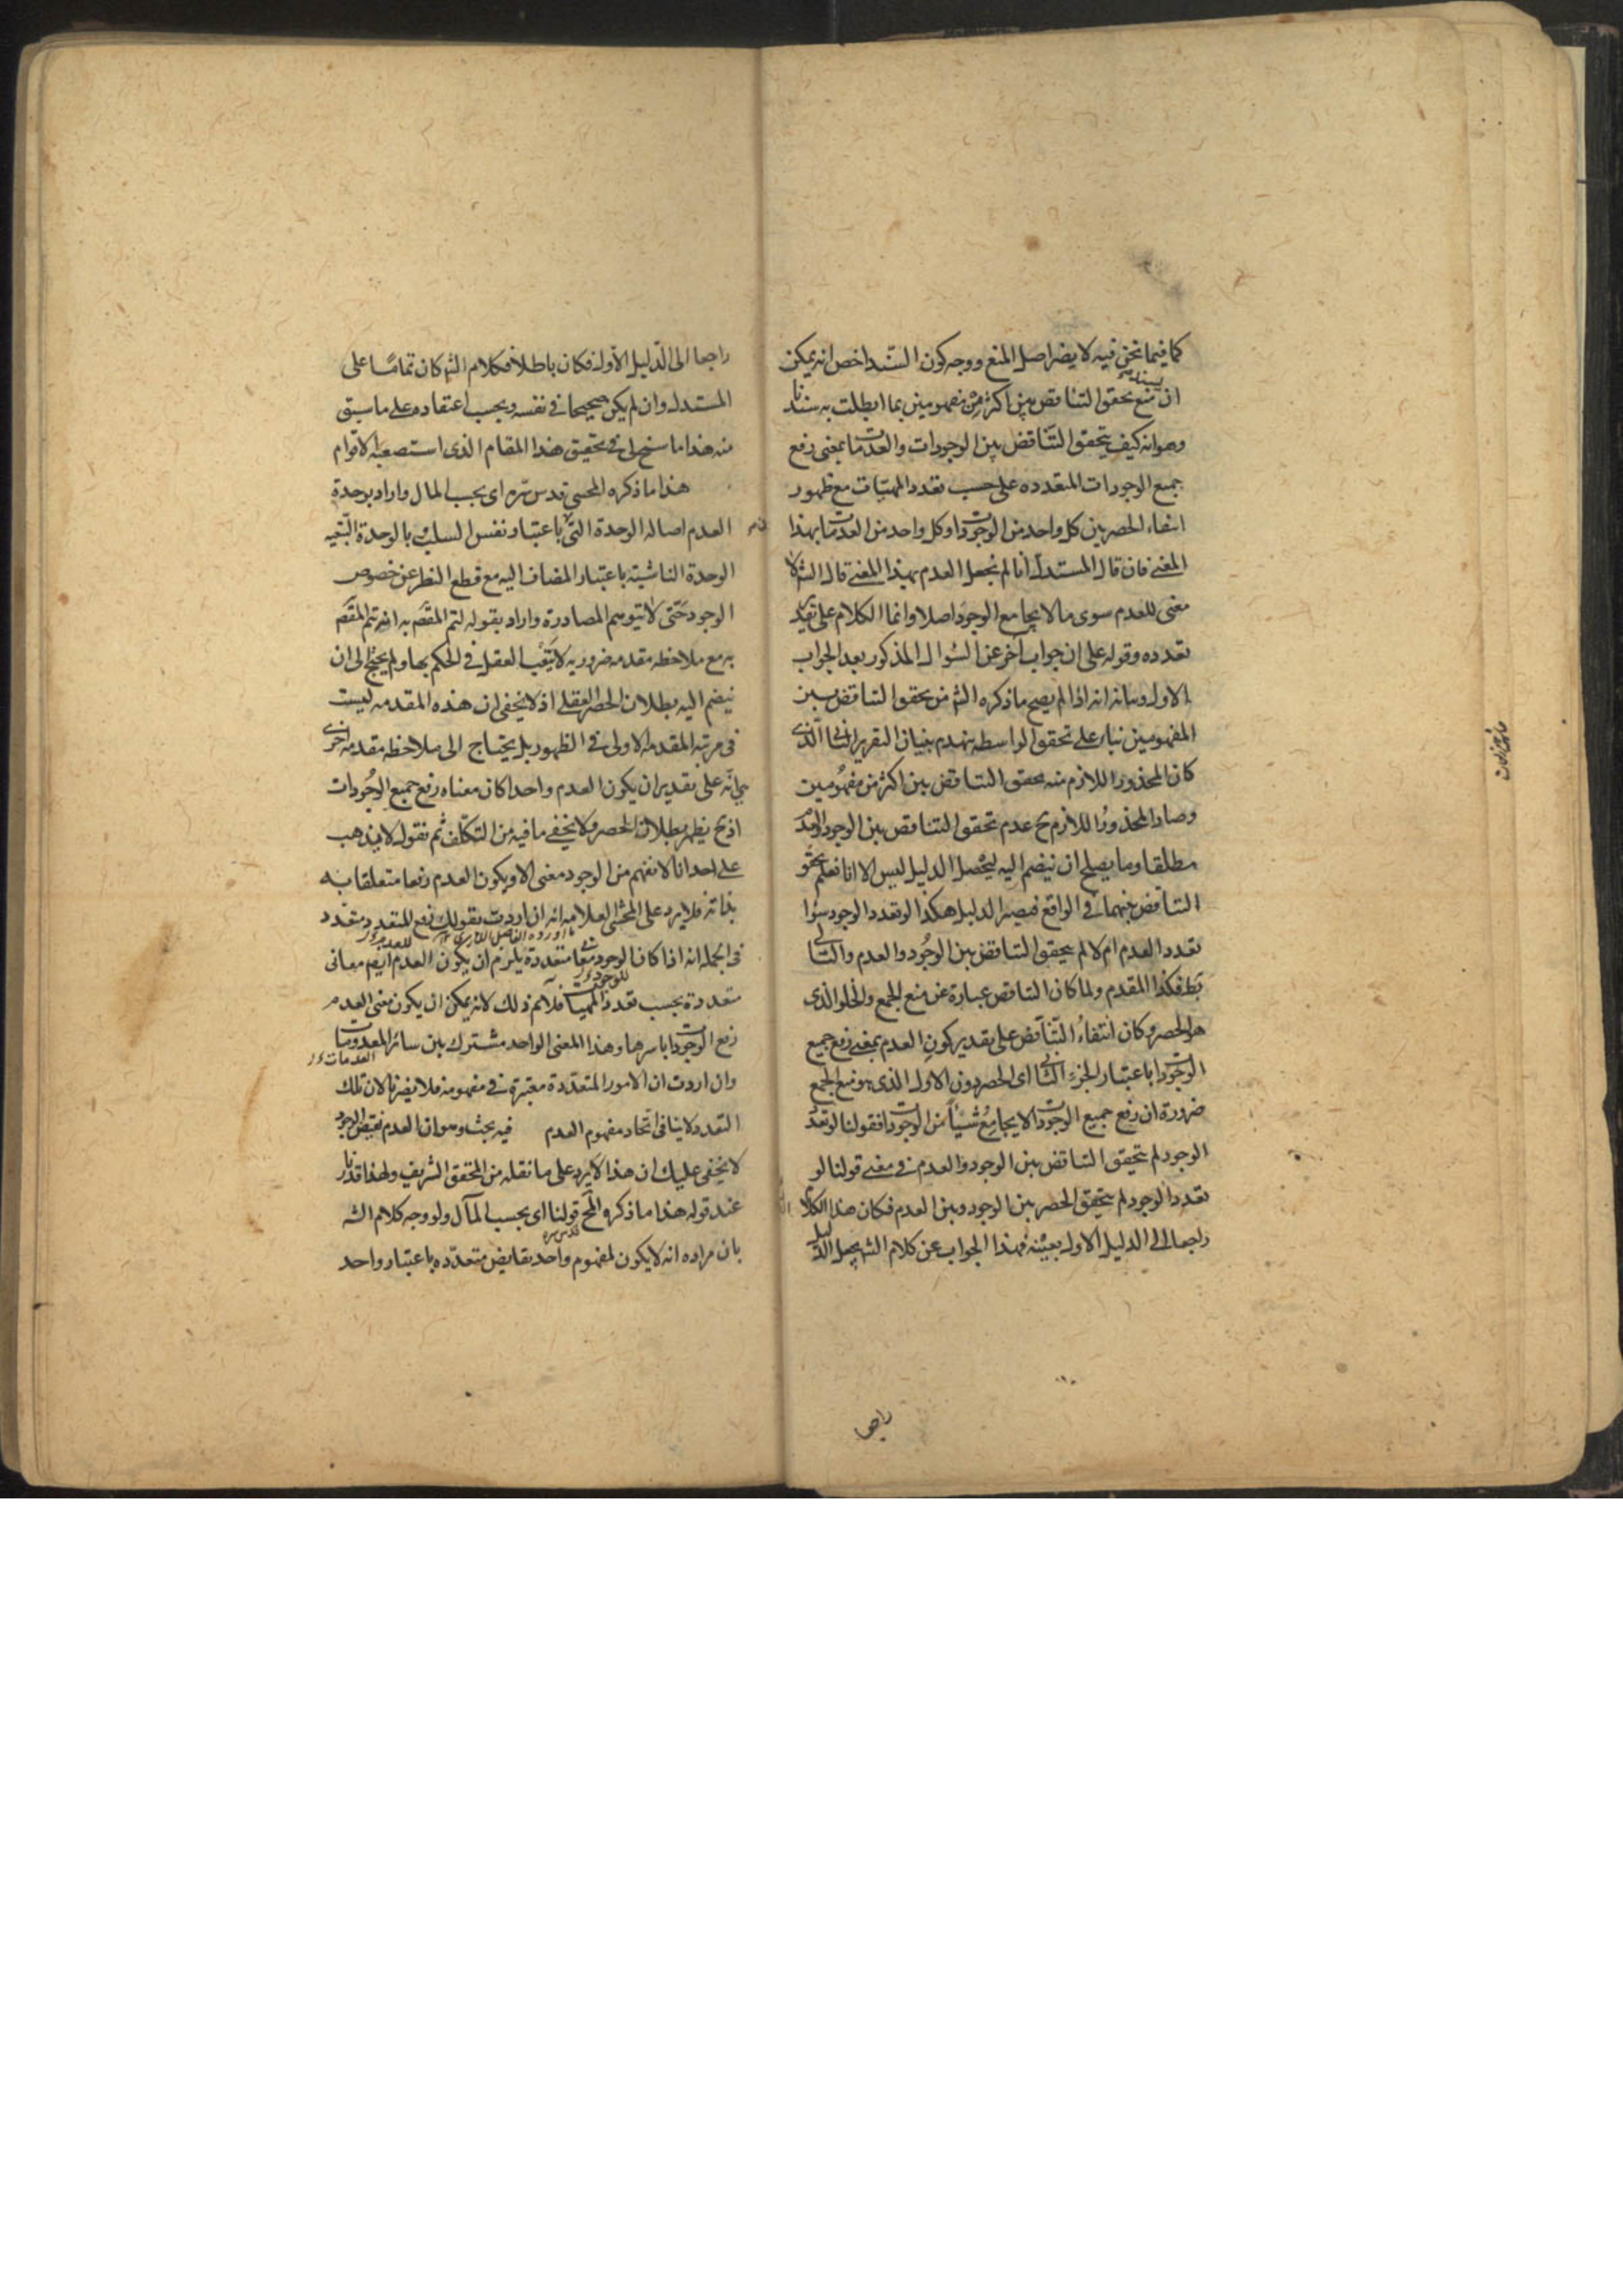 كما فيما نحن فيه لا يضر اصل المنع ووجه كون السند اخص انه يمكن
ان يمنع تحقق التناقض بين اكثر من مفهومين بما ابطلت به سندنا
وهو انه كيف يتحقق التناقض بين الوجودات والعدمات بمعنى رفع
جميع الوجودات المتعدده على حسب تعدد المهيات مع ظهور
انتفاء الحصر بين كل واحد من الوجودات او كل واحد من العدمات بهذا
المعنى فان قال المستدل انا لم نجعل العدم بهذا المعنى قال الش لا
معنى للعدم سوى ما لا يجامع الوجود اصلا وانما الكلام على تقدير
تعدده وقوله على ان جواب آخر عن السؤال المذكور بعد الجواب
الاول وبيانه انه اذا لم يصح ما ذكره الش من تحقق التناقض بين
المفهومين بناء على تحقق الواسطه ينهدم بنيان التقرير الثاني الذى
كان المحذور اللازم منه تحقق التناقض بين اكثر من مفهومين
وصار المحذور اللازم ح عدم تحقق التناقض بين الوجود والعدم
مطلقا وما يصلح ان ينضم اليه ليحصل الدليل ليس الا انا نعلم تحقق
التناقض بينهما فى الواقع فيصير الدليل هكذا لو تعدد الوجود سواء
تعدد العدم ام لا لم يتحقق التناقض بين الوجود والعدم والتالى
بط فكذا المقدم ولما كان التناقض عبارة عن منع الجمع والخلو الذى
هو الحصر وكان انتفاء التناقض على تقدير كون العدم بمعنى رفع جميع
الوجودات باعتبار الجزء الثانى اى الحصر دون الاول الذى هو منع الجمع
ضرورة ان رفع جميع الوجودات لا يجامع شيئا من الوجودات فقولنا لو تعدد
الوجود لم يتحقق التناقض بين الوجود والعدم فى معنى قولنا لو
تعدد الوجود لم يتحقق الحصر بين الوجود وبين العدم فكان هذا الكلام
راجعا الى الدليل الاول بعينه فهذا الجواب عن كلام الش يجعل الدليل
راجعا
راجعا الى الدليل الاول فكان باطلا فكلام الش كان تماما على
المستدل وان لم يكن صحيحا فى نفسه وبحسب اعتقاده على ما سبق
منه هذا ما سنح لى فى تحقيق هذا المقام الذى استصعبه الاقوام
هذا ما ذكره المحشى قدس سره اى بحسب المال واراد بوحدة
العدم اصالة الوحدة التى باعتبار نفس السلب بالوحدة التبعيه
الوحدة الناشيه باعتبار المضاف اليه مع قطع النظر عن خصوص
الوجود حتى لا يتوهم المصادرة واراد بقوله لتم المقصَ به انه يتم المقصَ
به مع ملاحظه مقدمه ضروريه لا يتعب العقل فى الحكم بها ولم يحتج الى ان
ينضم اليه بطلان الحصر العقلى اذ لا يخفى ان هذه المقدمه ليست
فى مرتبه المقدمه الاولى فى الظهور بل يحتاج الى ملاحظه مقدمه اخرى
هى انه على تقدير ان يكون العدم واحدا كان معناه رفع جميع الوجودات
اذ ح يظهر بطلان الحصر ولا يخفى ما فيه من التكلف ثم نقول لا يذهب
على احد انا لا نفهم من الوجود معنى الا ويكون العدم رفعا متعلقا به
بذاته فلا يرد على المحشى العلامه انه ان اردت بقولك رفع المتعدد متعدد
فى الجمله انه اذا كان الوجود معانى متعددة يلزم ان يكون العدم ايضم معانى
متعددة بحسب تعدد المهيات فلانم ذلك لانه يمكن ان يكون معنى العدم
رفع الوجودات باسرها وهذا المعنى الواحد مشترك بين سائر المعدومات
العدمات
وان اردت ان الامور المتعددة معتبرة فى مفهومه فلا يضرنا لان تلك
التعدد لا ينافى اتحاد مفهوم العدم فيه بحث وهو ان العدم نقيض الوجود
لا يخفى عليك ان هذا لا يرد على ما نقله من المحقق الشريف ولهذا قدرنا
عند قوله هذا ما ذكره المح قولنا اى بحسب المآل ولو وجه كلام الش
قدس سره
بان مراده انه لا يكون لمفهوم واحد نقايض متعدده باعتبار واحد